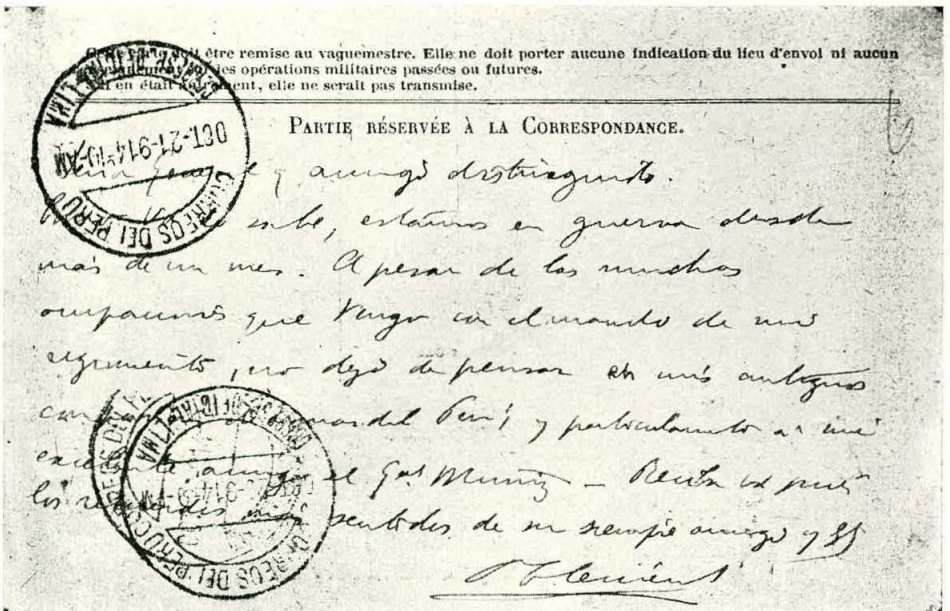 être remise au vaguemestre. Elle ne doit porter aucune indication du lieu d'envoi ni aucun
des opérations militaires passées ou futures.
en était autrement, elle ne serait pas transmise.
PARTIE RÉSERVÉE À LA CORRESPONDANCE.
OCT-21-914 10-AM
CORREOS DEL PERU
y amigo distinguido.
sabe, estamos en guerra desde
más de un mes. A pesar de las muchas
ocupaciones que tengo con el mando de mi
regimiento, no dejo de pensar en mis antiguos
del Perú y particularmente a mi
excelente amigo el Gal Muñiz – Reciba
los sentidos de su siempre amigo y SS
Clément
CORREOS DEL PERU